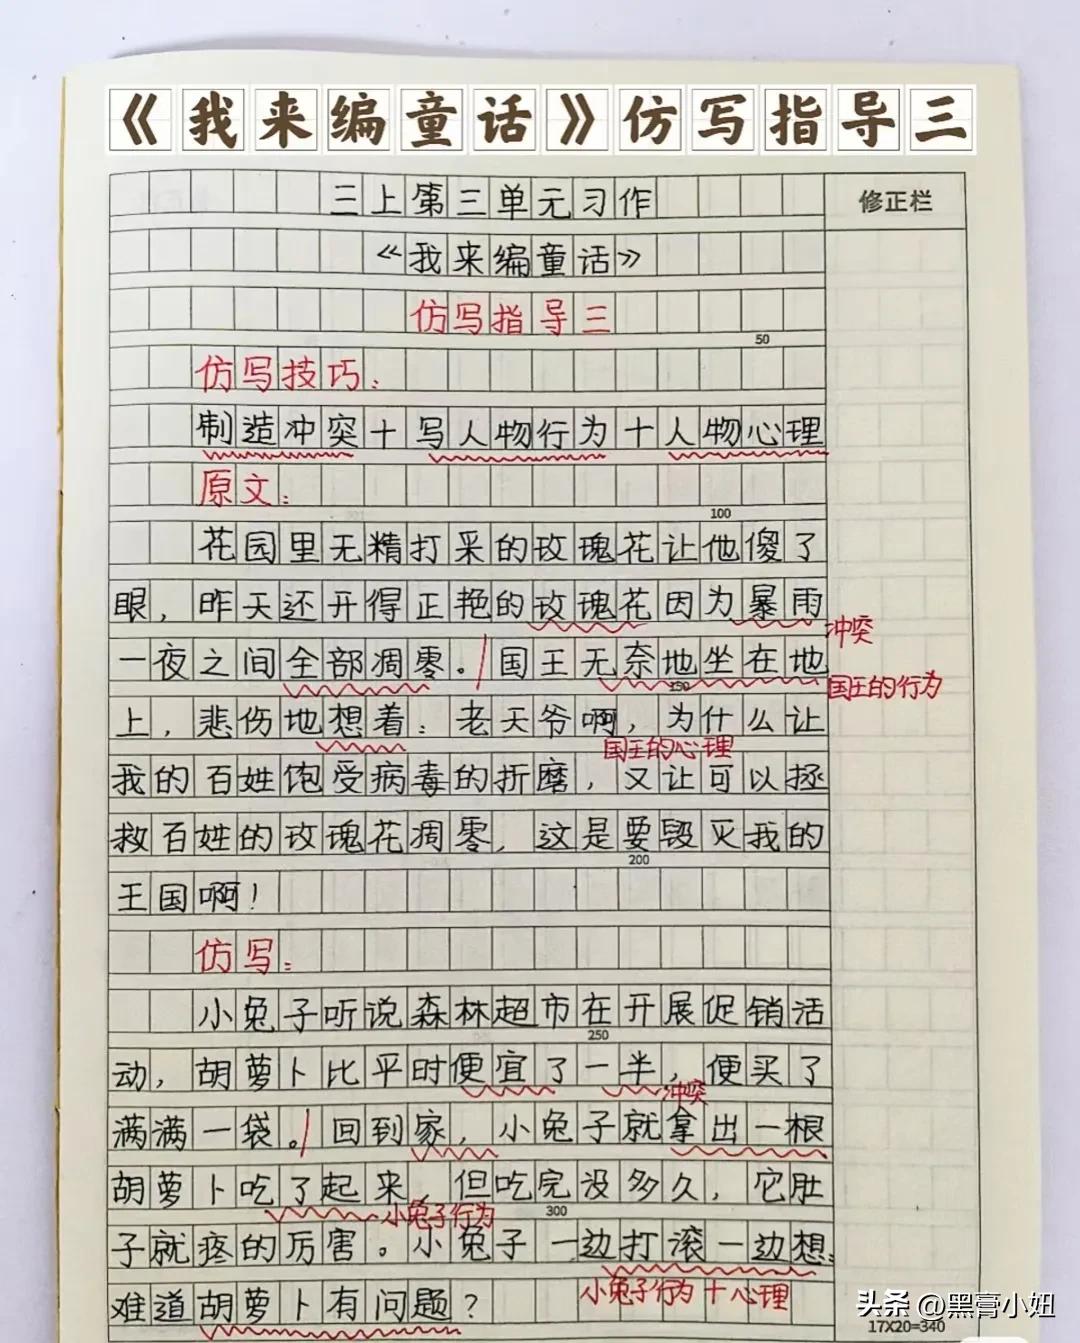 《我来编童话》仿写指导三
三上第三单元习作
修正栏
《我来编童话》
仿写指导三
50
仿写技巧：
制造冲突十写人物行为十人物心理
原文：
100
花园里无精打采的玫瑰花让他傻了
眼，昨天还开得正艳的玫瑰花因为暴雨
冲突
一夜之间全部凋零。/国王无奈地坐在地
150
国王的行为
上，悲伤地想着：老天爷啊，为什么让
国王的心理
我的百姓饱受病毒的折磨，又让可以拯
救百姓的玫瑰花凋零，这是要毁灭我的
200
王国啊！
仿写：
小兔子听说森林超市在开展促销活
250
动，胡萝卜比平时便宜了一半，便买了
冲突
满满一袋。/回到家，小兔子就拿出一根
胡萝卜吃了起来，但吃完没多久，它肚
小兔子行为
300
子就疼的厉害。小兔子一边打滚一边想：
小兔子行为十心理
难道胡萝卜有问题？
17X20=340
头条 @黑膏小妞